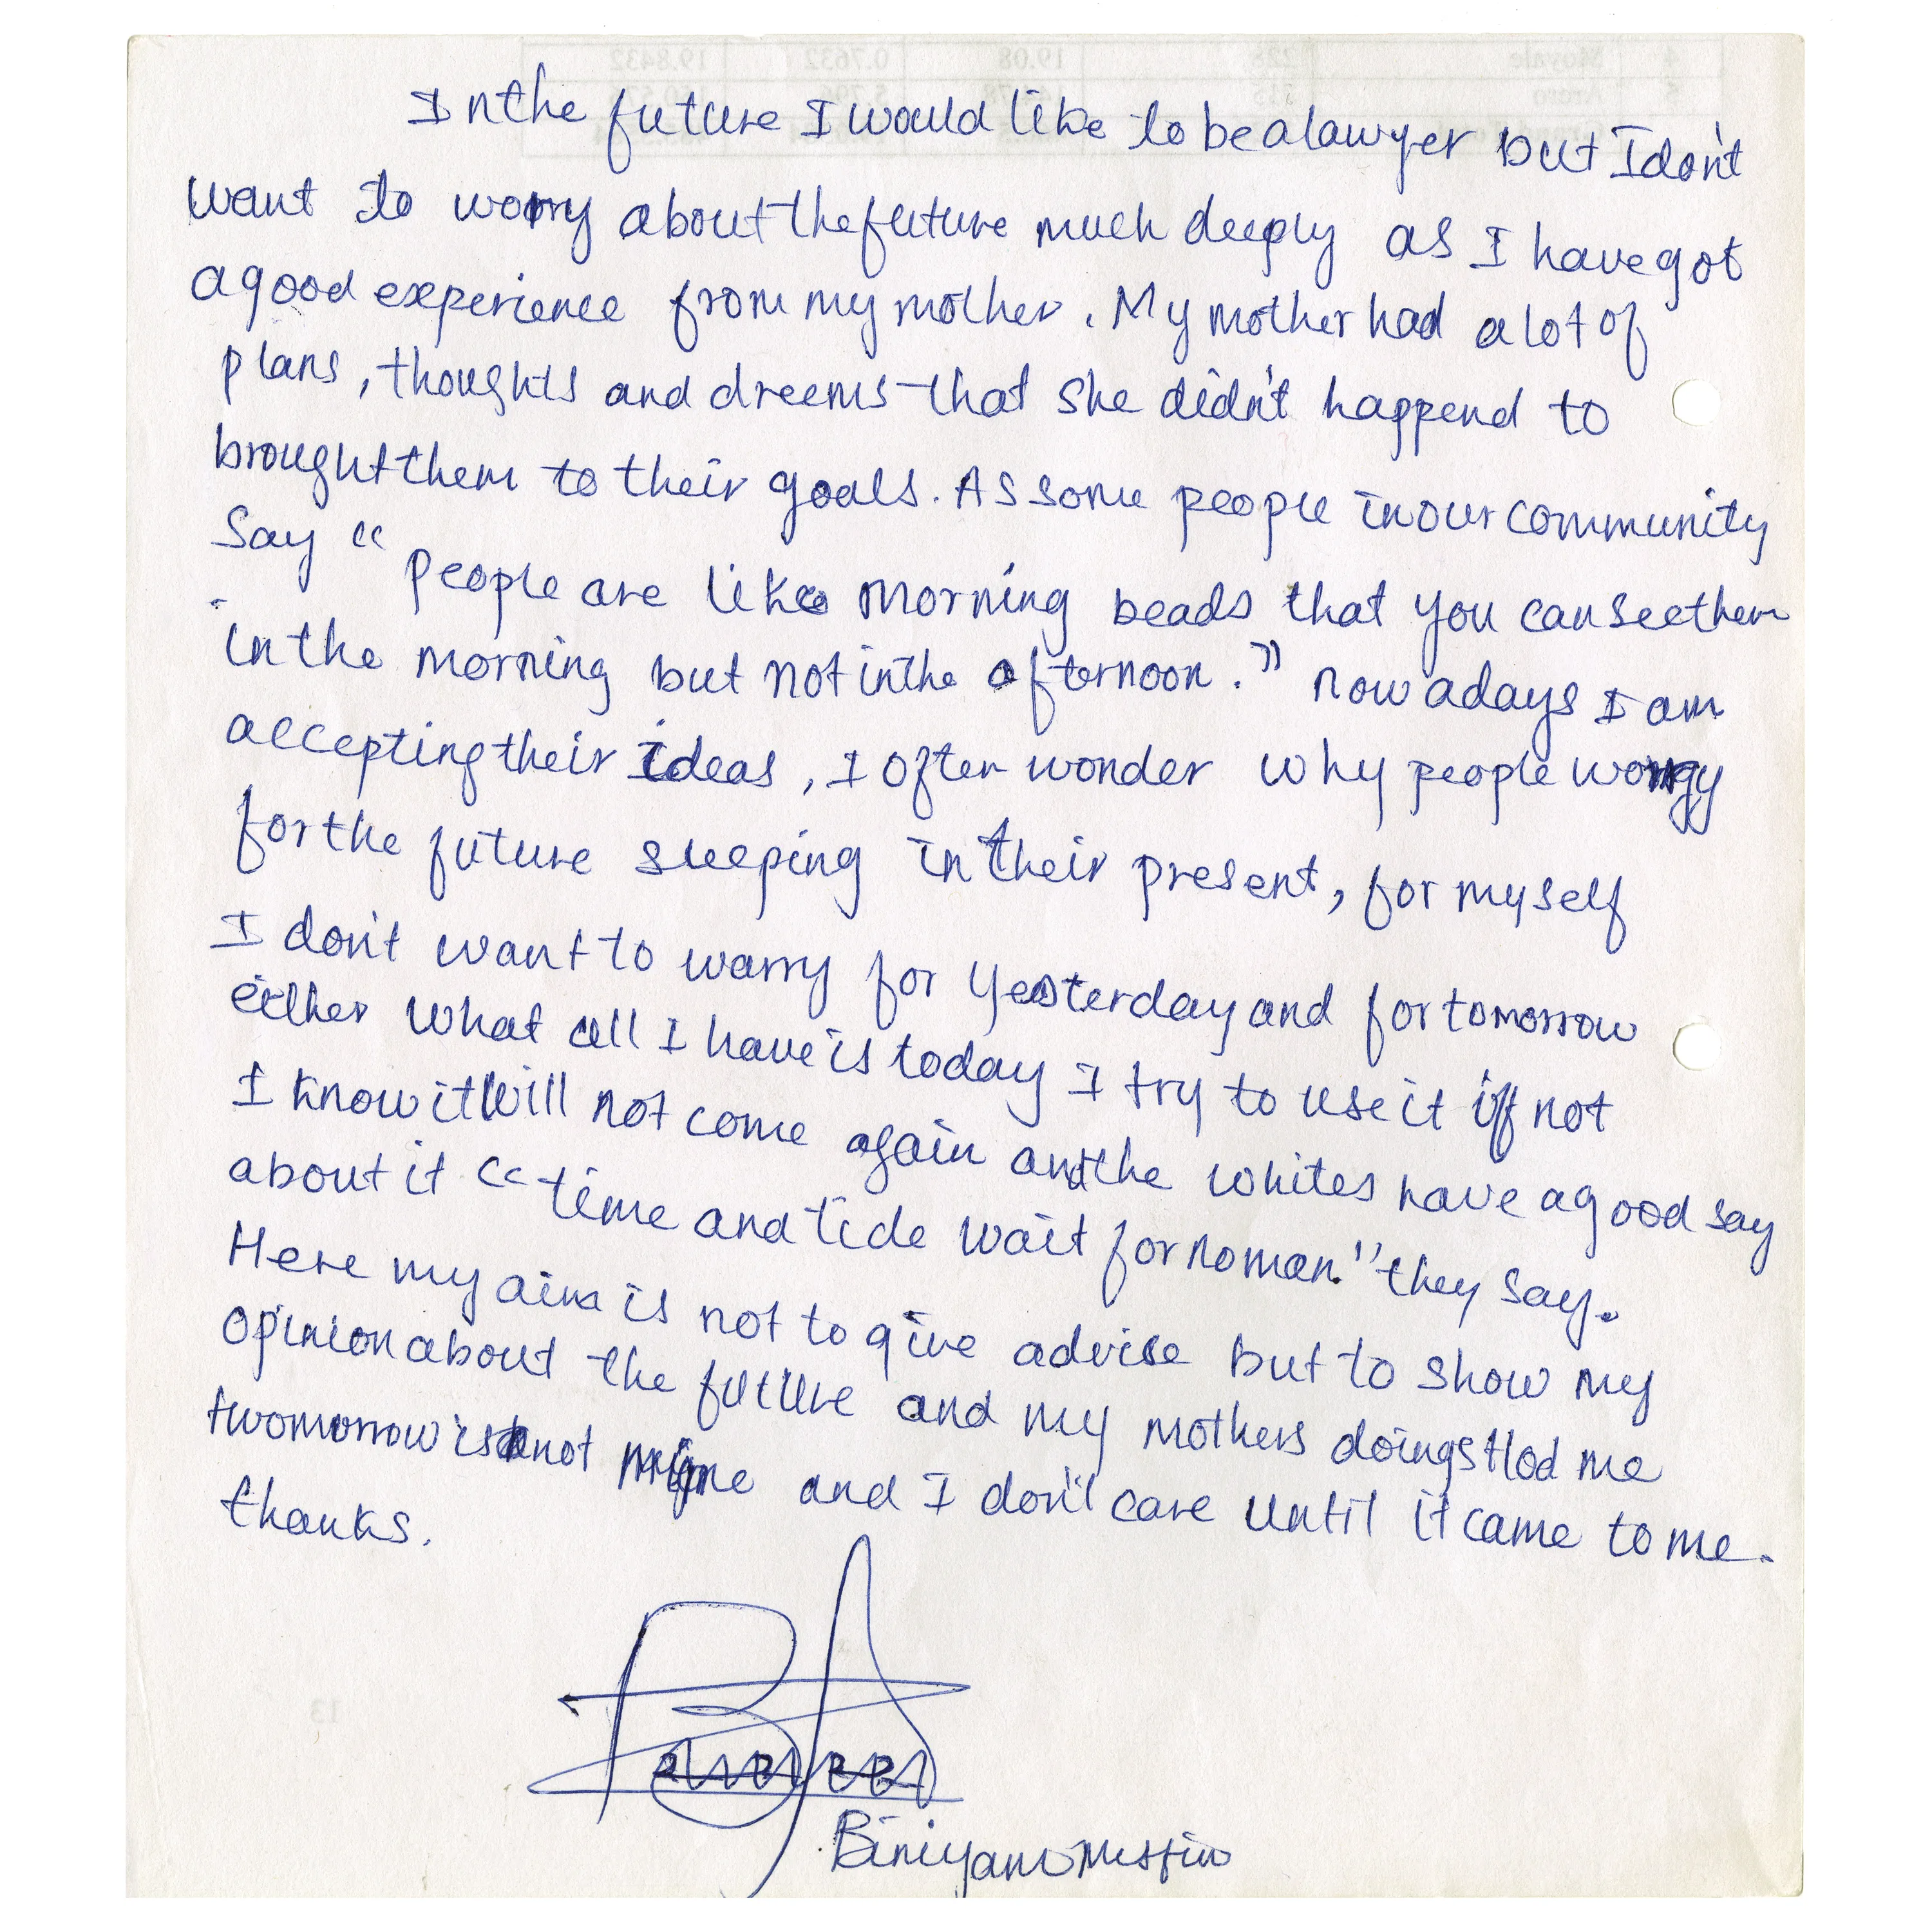 In the future I would like to be a lawyer but I don't
want to worry about the future much deeply as I have got
a good experience from my mother. My mother had a lot of
plans, thoughts and dreems that she didn't happend to
brought them to their goals. As some people in our community
say "people are like morning beads that you can see them
in the morning but not in the afternoon." now adays I am
accepting their ideas, I often wonder why people worry
for the future sleeping in their present, for myself
I don't want to warry for yesterday and for tomorrow
either what all I have is today I try to use it if not
I know it will not come again and the whites have a good say
about it "time and tide wait for no man." they say.
Here my aim is not to give advise but to show my
opinion about the future and my mothers doings tlod me
twomorrow is not mine and I don't care until it came to me.
thanks.
Biniyam Mesfin
13